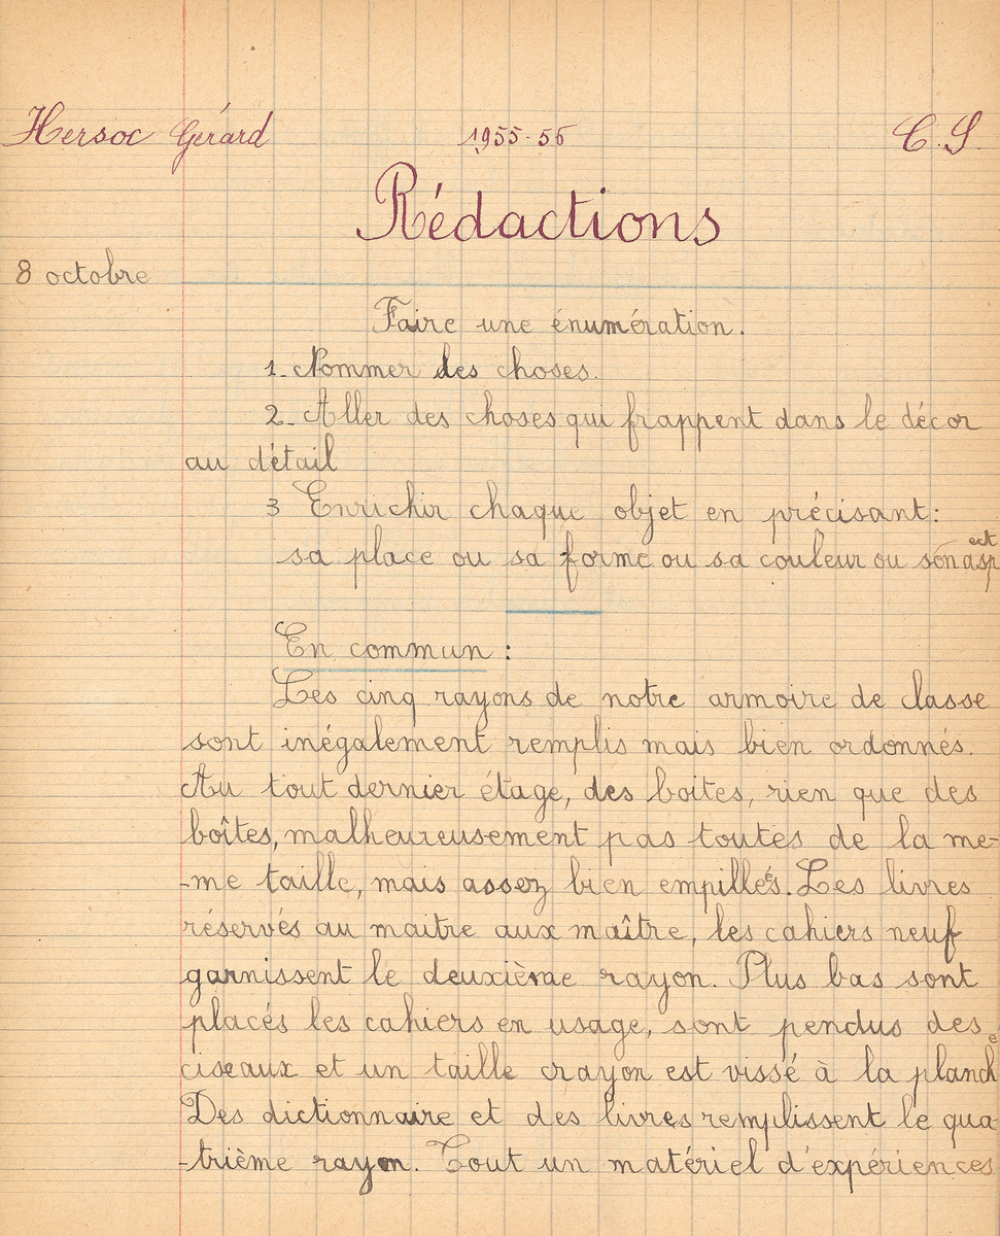 Hersoc Gérard 1955-56 C.S.
Rédactions
8 octobre
Faire une énumération.
1- Nommer des choses.
2- Aller des choses qui frappent dans le décor
au détail
3 Enrichir chaque objet en précisant:
sa place ou sa forme ou sa couleur ou son aspect
En commun :
Les cinq rayons de notre armoire de classe
sont inégalement remplis mais bien ordonnés.
Au tout dernier étage, des boites, rien que des
boîtes, malheureusement pas toutes de la me-
-me taille, mais assez bien empillés. Les livres
réservés au maitre aux maître, les cahiers neuf
garnissent le deuxième rayon. Plus bas sont
placés les cahiers en usage, sont pendus des
ciseaux et un taille crayon est vissé à la planche
Des dictionnaire et des livres remplissent le qua-
-trième rayon. Tout un matériel d'expériences